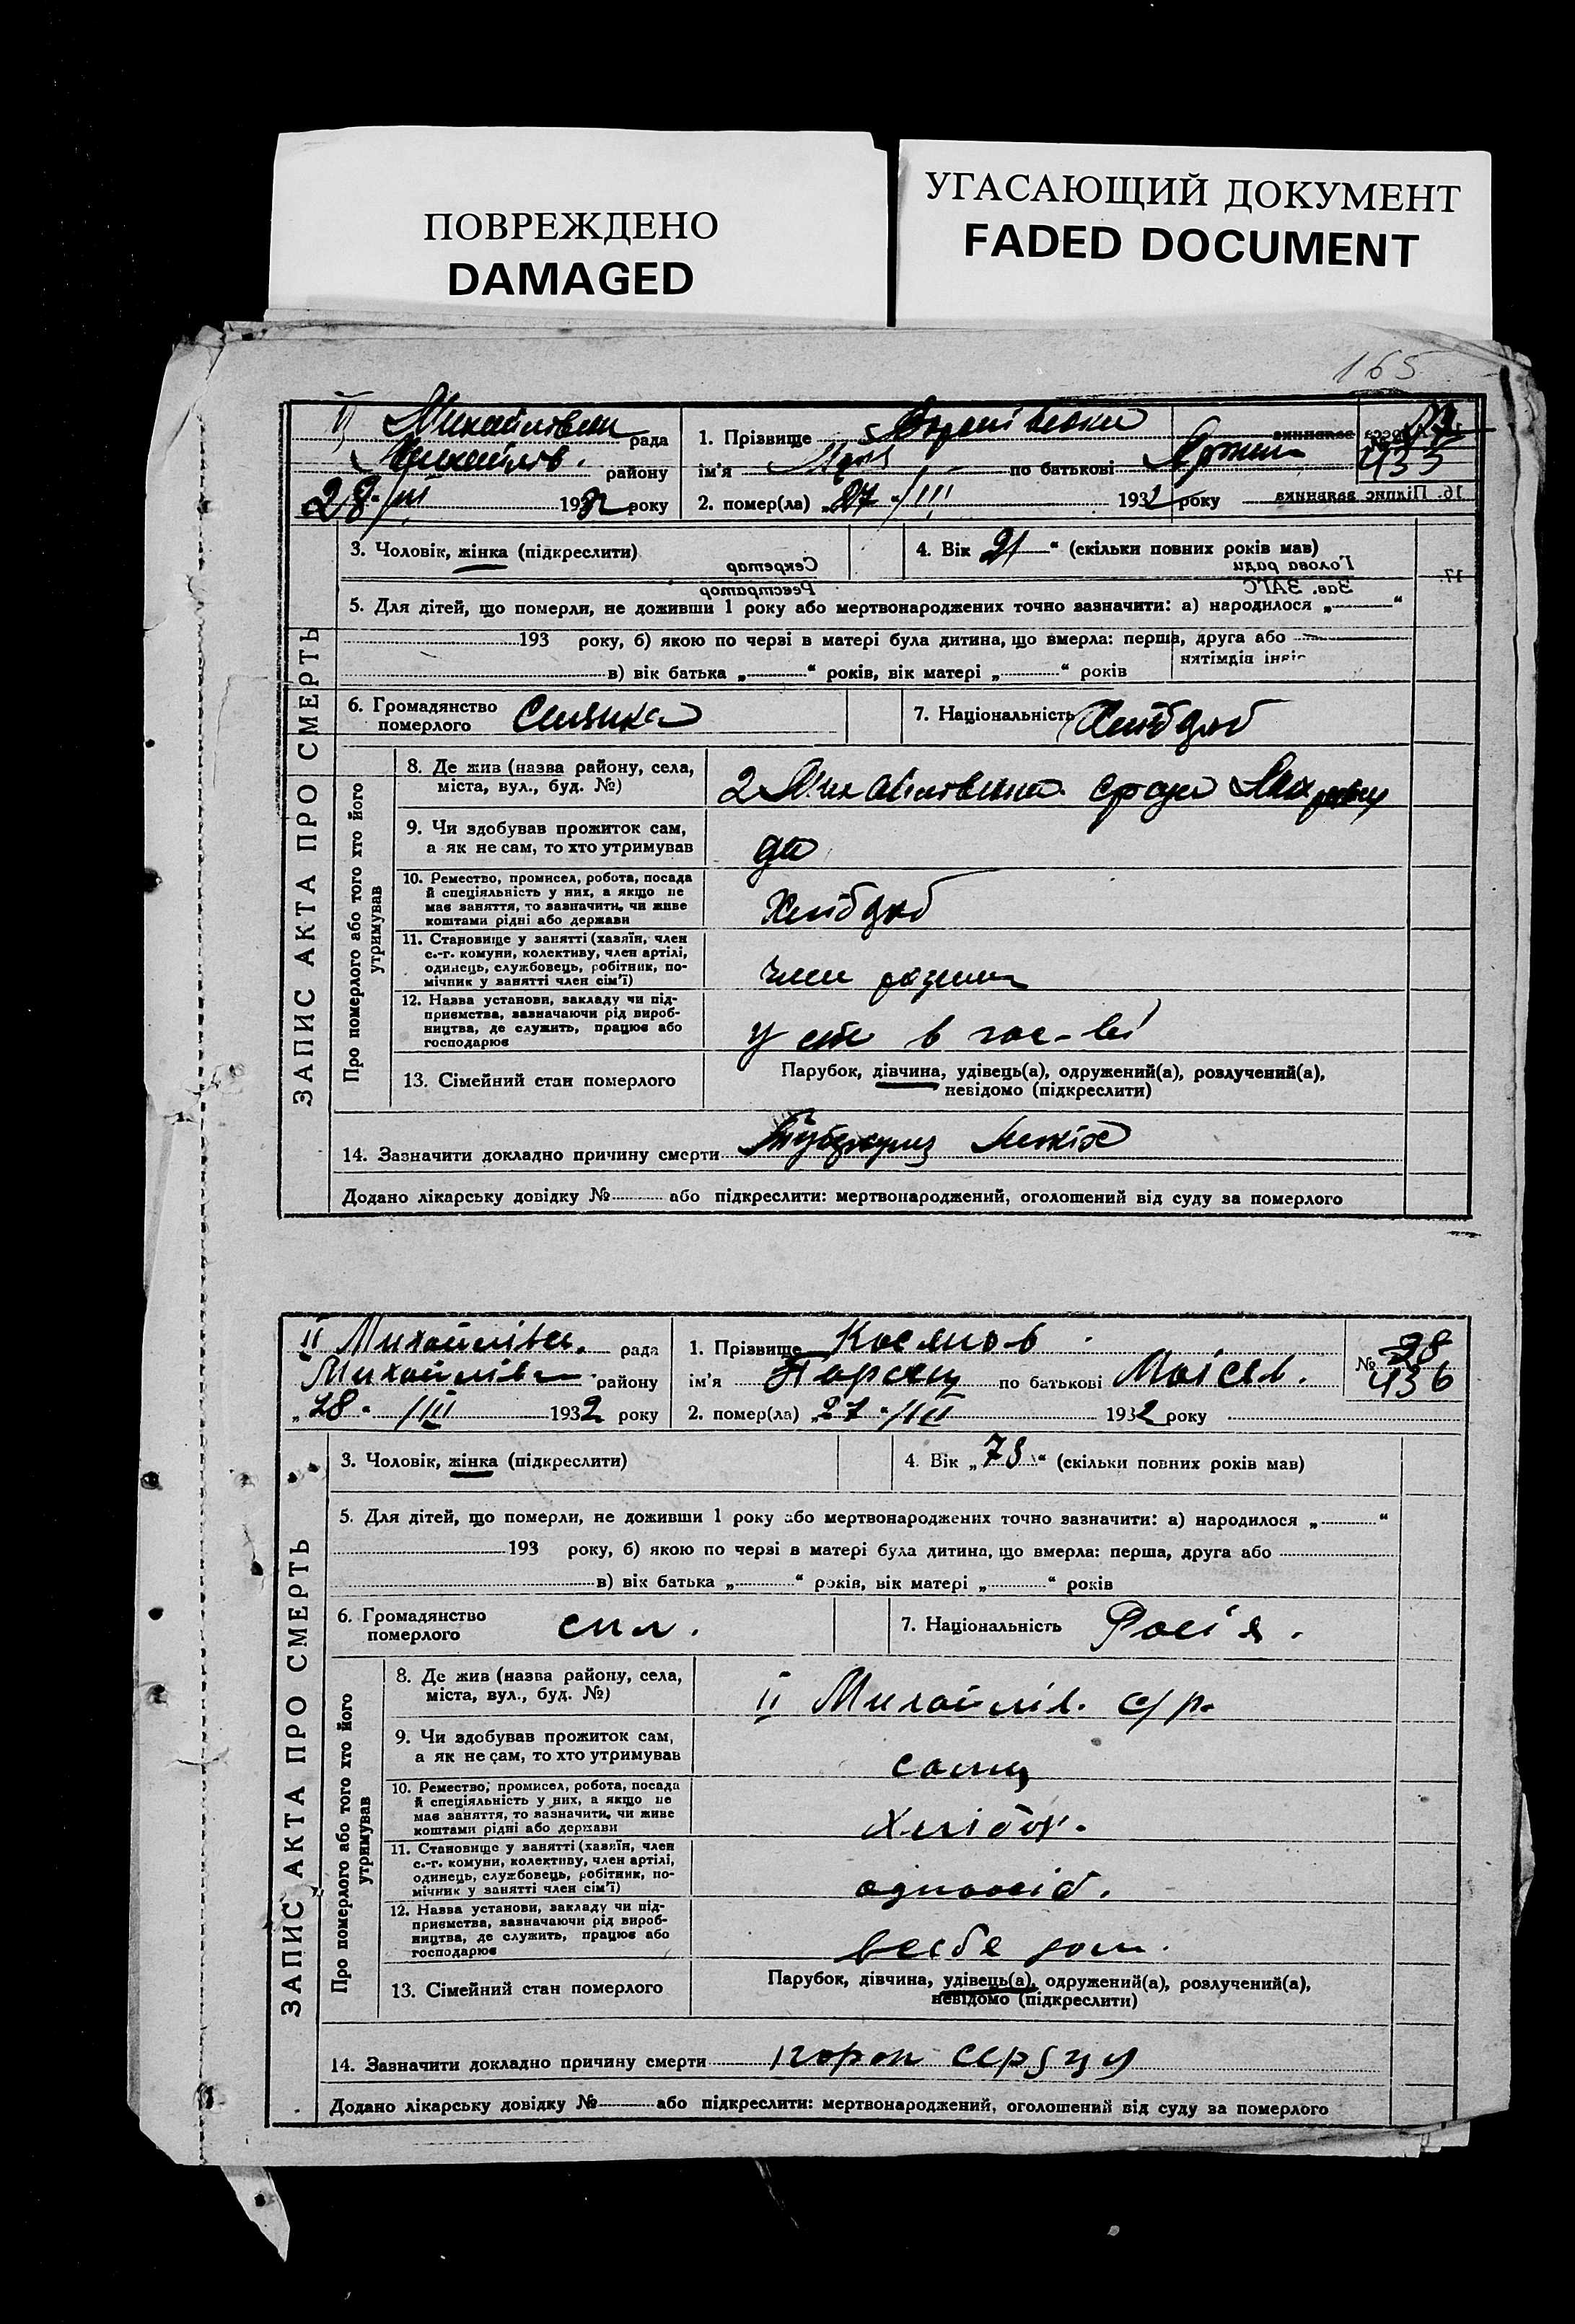 ПОВРЕЖДЕНО
DAMAGED
УГАСАЮЩИЙ ДОКУМЕНТ
FADED DOCUMENT
165
рада
району
28 /III 1932 року
1. Прізвище
ім'я по батькові
2. помер(ла) „27 /III 1932 року
435
3. Чоловік, жінка (підкреслити)
4. Вік 21 “ (скільки повних років мав)
5. Для дітей, що померли, не доживши 1 року або мертвонароджених точно зазначити: а) народилося „ “
193 року, б) якою по черзі в матері була дитина, що вмерла: перша, друга або
в) вік батька „ “ років, вік матері „ “ років
6. Громадянство
померлого
7. Національність
ЗАПИС АКТА ПРО СМЕРТЬ
Про померлого або того хто його
утримував
8. Де жив (назва району, села,
міста, вул., буд. №)
9. Чи здобував прожиток сам,
а як не сам, то хто утримував
да
10. Ремество, промисел, робота, посада
й спеціяльність у них, а якщо не
має заняття, то зазначити, чи живе
коштами рідні або держави
Хлібороб
11. Становище у занятті (хазяїн, член
с.-г. комуни, колективу, член артілі,
одинець, службовець, робітник, по-
мічник у занятті член сім'ї)
член родини
12. Назва установи, закладу чи під-
приємства, зазначаючи рід вироб-
ництва, де служить, працює або
господарює
у в гос-ві
13. Сімейний стан померлого
Парубок, дівчина, удівець(а), одружений(а), розлучений(а),
невідомо (підкреслити)
14. Зазначити докладно причину смерти Туберкульоз легких
Додано лікарську довідку № або підкреслити: мертвонароджений, оголошений від суду за померлого
II Михайлівсь. рада
Михайлів району
„28 /III 1932 року
1. Прізвище
ім'я Параски по батькові Моісев.
2. помер(ла) „27 /III 1932 року
№ 28
436
3. Чоловік, жінка (підкреслити)
4. Вік „78“ (скільки повних років мав)
5. Для дітей, що померли, не доживши 1 року або мертвонароджених точно зазначити: а) народилося „ “
193 року, б) якою по черзі в матері була дитина, що вмерла: перша, друга або
в) вік батька „ “ років, вік матері „ “ років
6. Громадянство
померлого
7. Національність Росія.
ЗАПИС АКТА ПРО СМЕРТЬ
Про померлого або того хто його
утримував
8. Де жив (назва району, села,
міста, вул., буд. №)
II Михайлів. с/р.
9. Чи здобував прожиток сам,
а як не сам, то хто утримував
10. Ремество, промисел, робота, посада
й спеціяльність у них, а якщо не
має заняття, то зазначити, чи живе
коштами рідні або держави
11. Становище у занятті (хазяїн, член
с.-г. комуни, колективу, член артілі,
одинець, службовець, робітник, по-
мічник у занятті член сім'ї)
одноосіб.
12. Назва установи, закладу чи під-
приємства, зазначаючи рід вироб-
ництва, де служить, працює або
господарює
всебе дом.
13. Сімейний стан померлого
Парубок, дівчина, удівець(а), одружений(а), розлучений(а),
невідомо (підкреслити)
14. Зазначити докладно причину смерти порок сердця
Додано лікарську довідку № або підкреслити: мертвонароджений, оголошений від суду за померлого